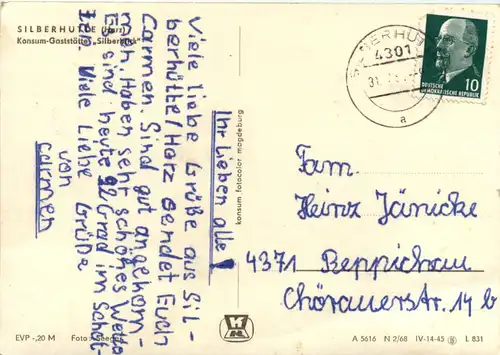 SILBERHÜTTE (Harz)
Konsum-Gaststätte „Silberbach"
Ihr Lieben alle!
Viele liebe Grüße aus Sil-
berhütte/Harz sendet Euch
Carmen. Sind gut angekom-
men. Haben sehr schönes Wetter
Es sind heute 92 Grad im Schat-
Viele Liebe Grüße
von
Carmen
konsum fotocolor magdeburg
4301
a
10
DEUTSCHE
DEMOKRATISCHE REPUBLIK
Fam.
Heinz Jänicke
4371 Reppichau
Chörauerstr. 14 b
EVP -,20 M
A 5616 N 2/68 IV-14-45 L 831